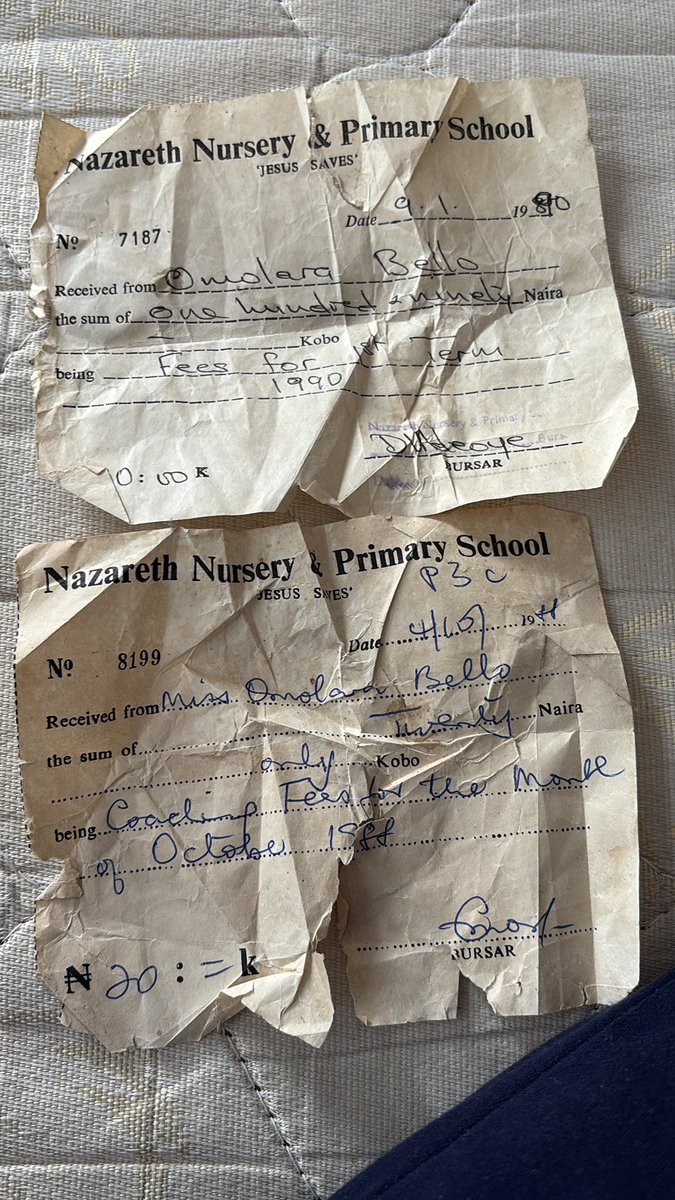 Nazareth Nursery & Primary School
'JESUS SAVES'
Date 9.1. 1990
No 7187
Received from Omolara Bello
the sum of One hundred & ninety Naira
— Kobo
being Fees for 1st Term
1990
Nazareth Nursery & Primary Sc
Burs
0:00 K
BURSAR
Nazareth Nursery & Primary School
'JESUS SAVES'
P3C
Date 4/10/ 1988
No 8199
Received from Miss Omolara Bello
the sum of Twenty Naira
only Kobo
being Coaching Fees for the Month
of October 1988
BURSAR
₦ 20 : = k